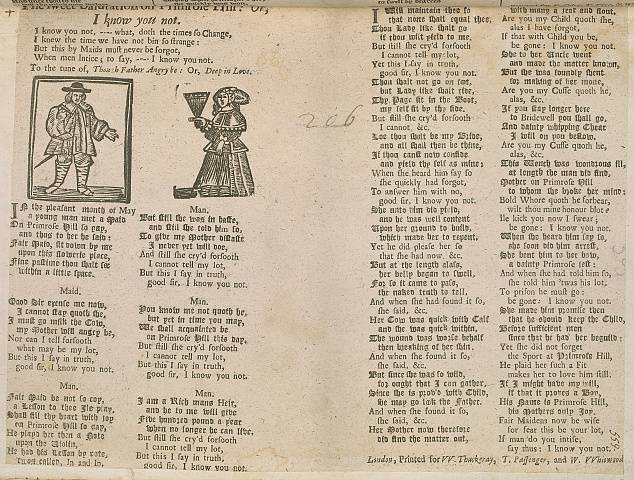 The Sweet Salutation on Primrose Hill: Or,
I know you not.
I know you not, ---- what, doth the times so Change,
I knew the time we have not bin so strange:
But this by Maids must never be forgot,
When men Intice; to say, ---- I know you not.
To the tune of, Though Father Angry be: Or, Deep in Love.
206
IN the pleasant month of May
a young man met a Maid
On Primrose Hill so gay,
and thus to her he said:
Fair Maid, sit down by me
upon this flowerie place,
Fine pastime thou shalt see
within a little space.
Maid.
Good Sir excuse me now,
I cannot stay quoth she,
I must go milk the Cow,
my Mother will angry be,
Nor can I tell forsooth
what may be my lot,
But this I say in truth,
good sir, I know you not.
Man.
Fair Maid be not so coy,
a Lesson to thee Ile play,
Shall fill thy heart with joy
on Primrose Hill so gay,
He plaid her than a Note
upon the Violin,
He had his Lesson by rote,
twas called, In and In,
Man.
But still she was in haste,
and she told him so,
To give my Mother distaste
I never yet will doe,
And still she cry'd forsooth
I cannot tell my lot,
But this I say in truth,
good sir, I know you not.
Man.
You know me not quoth he,
but yet in time you may,
We shall acquainted be
on Primrose Hill this day,
But still she cry'd forsooth
I cannot tell my lot,
But this I say in truth,
good sir, I know you not.
Man.
I am a Rich mans Heir,
and he to me will give
Five hundred pound a year
when no longer he can live.
But still she cry'd forsooth
I cannot tell my lot,
But this I say in truth,
good sir, I know you not.
I Will maintain thee so
that none shall equal thee,
Thou Lady like shalt go
if thou wilt yield to me.
But still she cry'd forsooth
I cannot tell my lot,
Yet this I say in truth,
good sir, I know you not.
Thou shalt not go on foot,
but Lady like shalt ride,
Thy Page sit in the Boot,
my self sit by thy side.
But still she cry'd forsooth
I cannot, &c.
Loe thou shalt be my Bride,
and all shall then be thine,
If thou canst now confide
and yield thy self as mine:
When she heard him say so
she quickly had forgot,
To answer him with no,
good sir, I know you not.
She unto him did yield,
and he was well content
Upon her ground to build,
which made her to repent,
Yet he did please her so
that she had now, &c.
But at the length alass,
her belly began to swell,
For so it came to pass,
the naked truth to tell,
And when she had found it so,
she said, &c.
Her Cow she was quick with Calf
and she was quick within,
The wound was worse behalf
then breaking of her skin,
And when she found it so,
she said, &c.
But since she was so wild,
for ought that I can gather,
Since she is prov'd with Child,
she may go look the Father,
And when she found it so,
she said, &c.
Her Mother now therefore
did find the matter out,
with many a jeer and flout,
Are you my Child quoth she,
alas I have forgot,
If that with Child you be,
be gone: I know not.
She to her Uncle went
and made the matter known,
But she was soundly shent
for making of her mone,
Are you my Cusse quoth he,
alas, &c.
If you stay longer here
to Bridewell you shall go,
And dainty whipping Chear
I will on you bestow.
Are you my Cusse quoth he,
alas, &c.
This Wench was wondrous ill,
at length the man did find,
Mother on Primrose Hill
to whom she broke her mind:
Bold Whore quoth he forbear,
wilt thou mine honour blot
Ile kick you now I swear;
be gone: I know you not.
When she heard him say so,
she soon did him arrest,
She sent him to her bow,
a dainty Primrose jest:
And when she had told him so,
she told him 'twas his lot,
To prison he must go:
be gone: I know you not.
She made him promise then
that he should keep the Child,
Before sufficient men
since that he had her beguild:
Yet she did not forget
the Sport at Primrose Hill,
He plaid her such a Fit
makes her to love him still.
If I might have my will,
if that it proves a Boy,
His Name is Primrose Hill,
his Mothers only Joy.
Fair Maidens now be wise
for fear be your lot,
If man do you intise,
say thus: I know you not.
London, Printed for W. Thackeray, T. Passenger, and W. Whitwood
559.